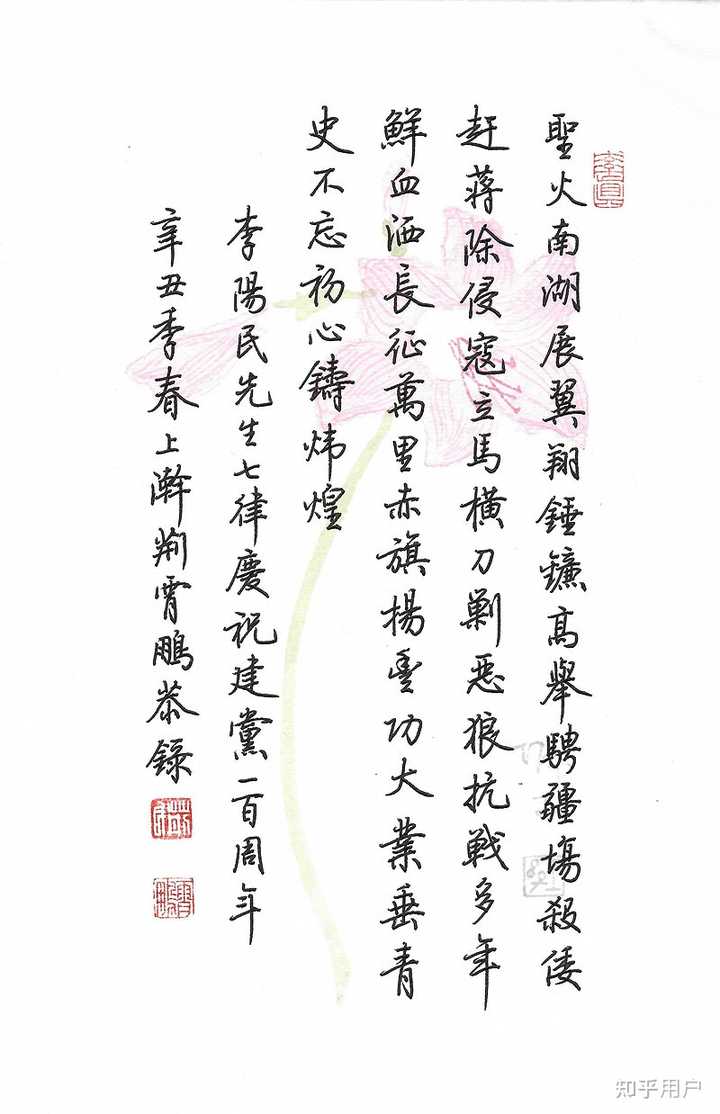 聖火南湖展翼翔錘鐮高舉騁疆場殺倭
赶蔣除侵寇立馬橫刀剿惡狼抗戰多年
鮮血洒長征萬里赤旗揚豐功大業垂青
史不忘初心鑄炜煌
李陽民先生七律慶祝建黨一百周年
辛丑季春上澣荊霄鵬恭錄
知乎用户